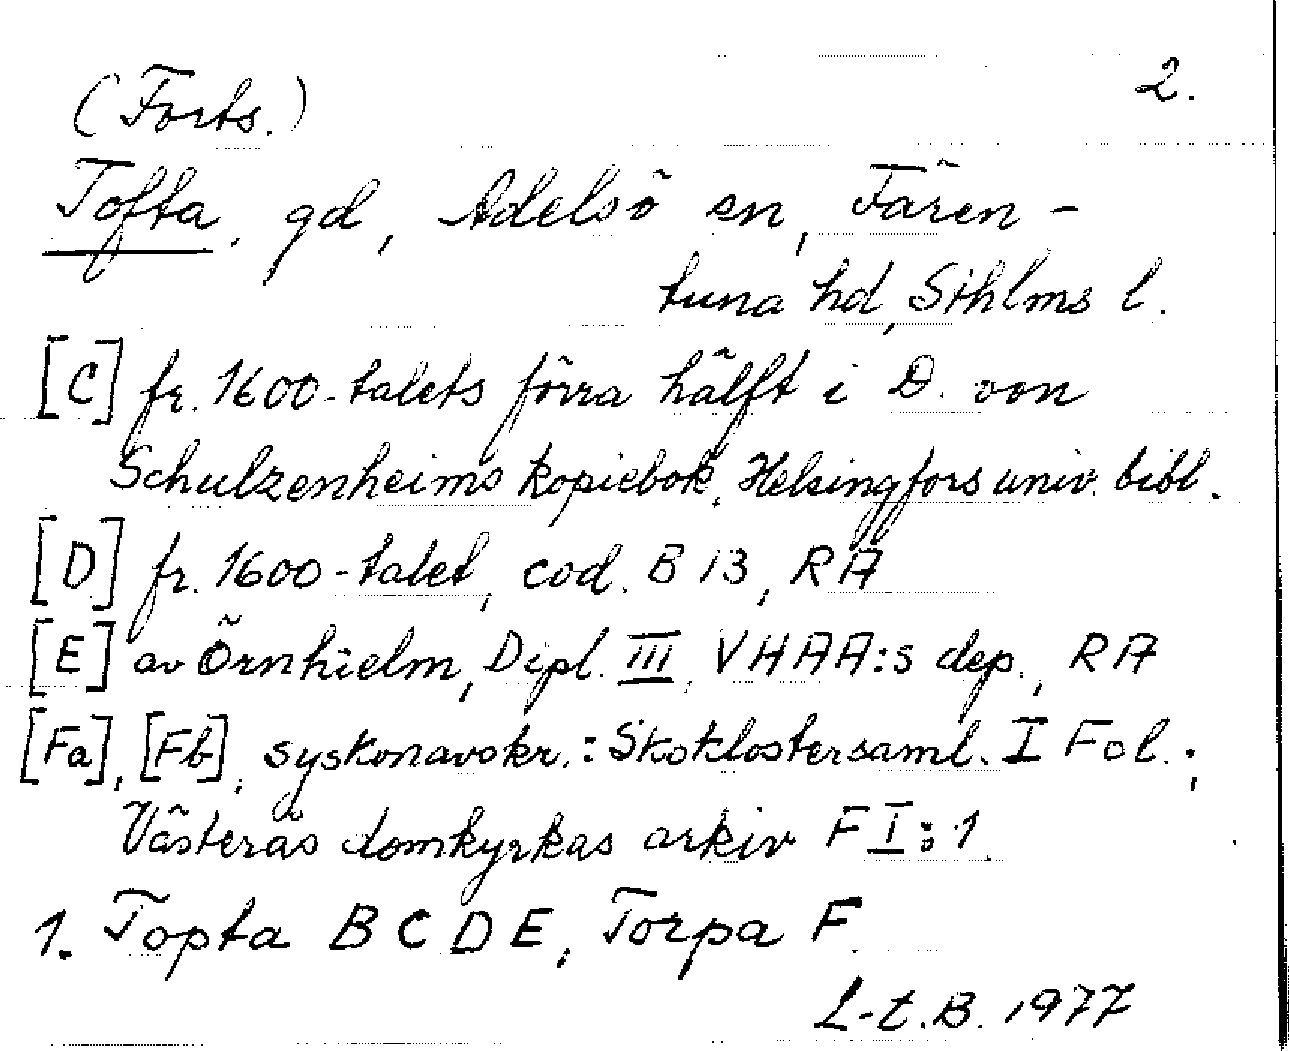 2.
(Forts.)
Tofta, gd, Adelsö sn, Fären-
tuna hd, Sthlms l.
[C] fr. 1600-talets förra hälft i D. von
Schulzenheims kopiebok, Helsingfors univ. bibl.
[D] fr. 1600-talet, cod. B 13, RA
[E] av Örnhielm, Dipl. III, VHAA:s dep., RA
[Fa], [Fb], syskonavskr.: Skoklostersaml. I Fol.;
Västerås domkyrkas arkiv F I:1.
1. Topta B C D E, Torpa F.
L-t.B. 1977